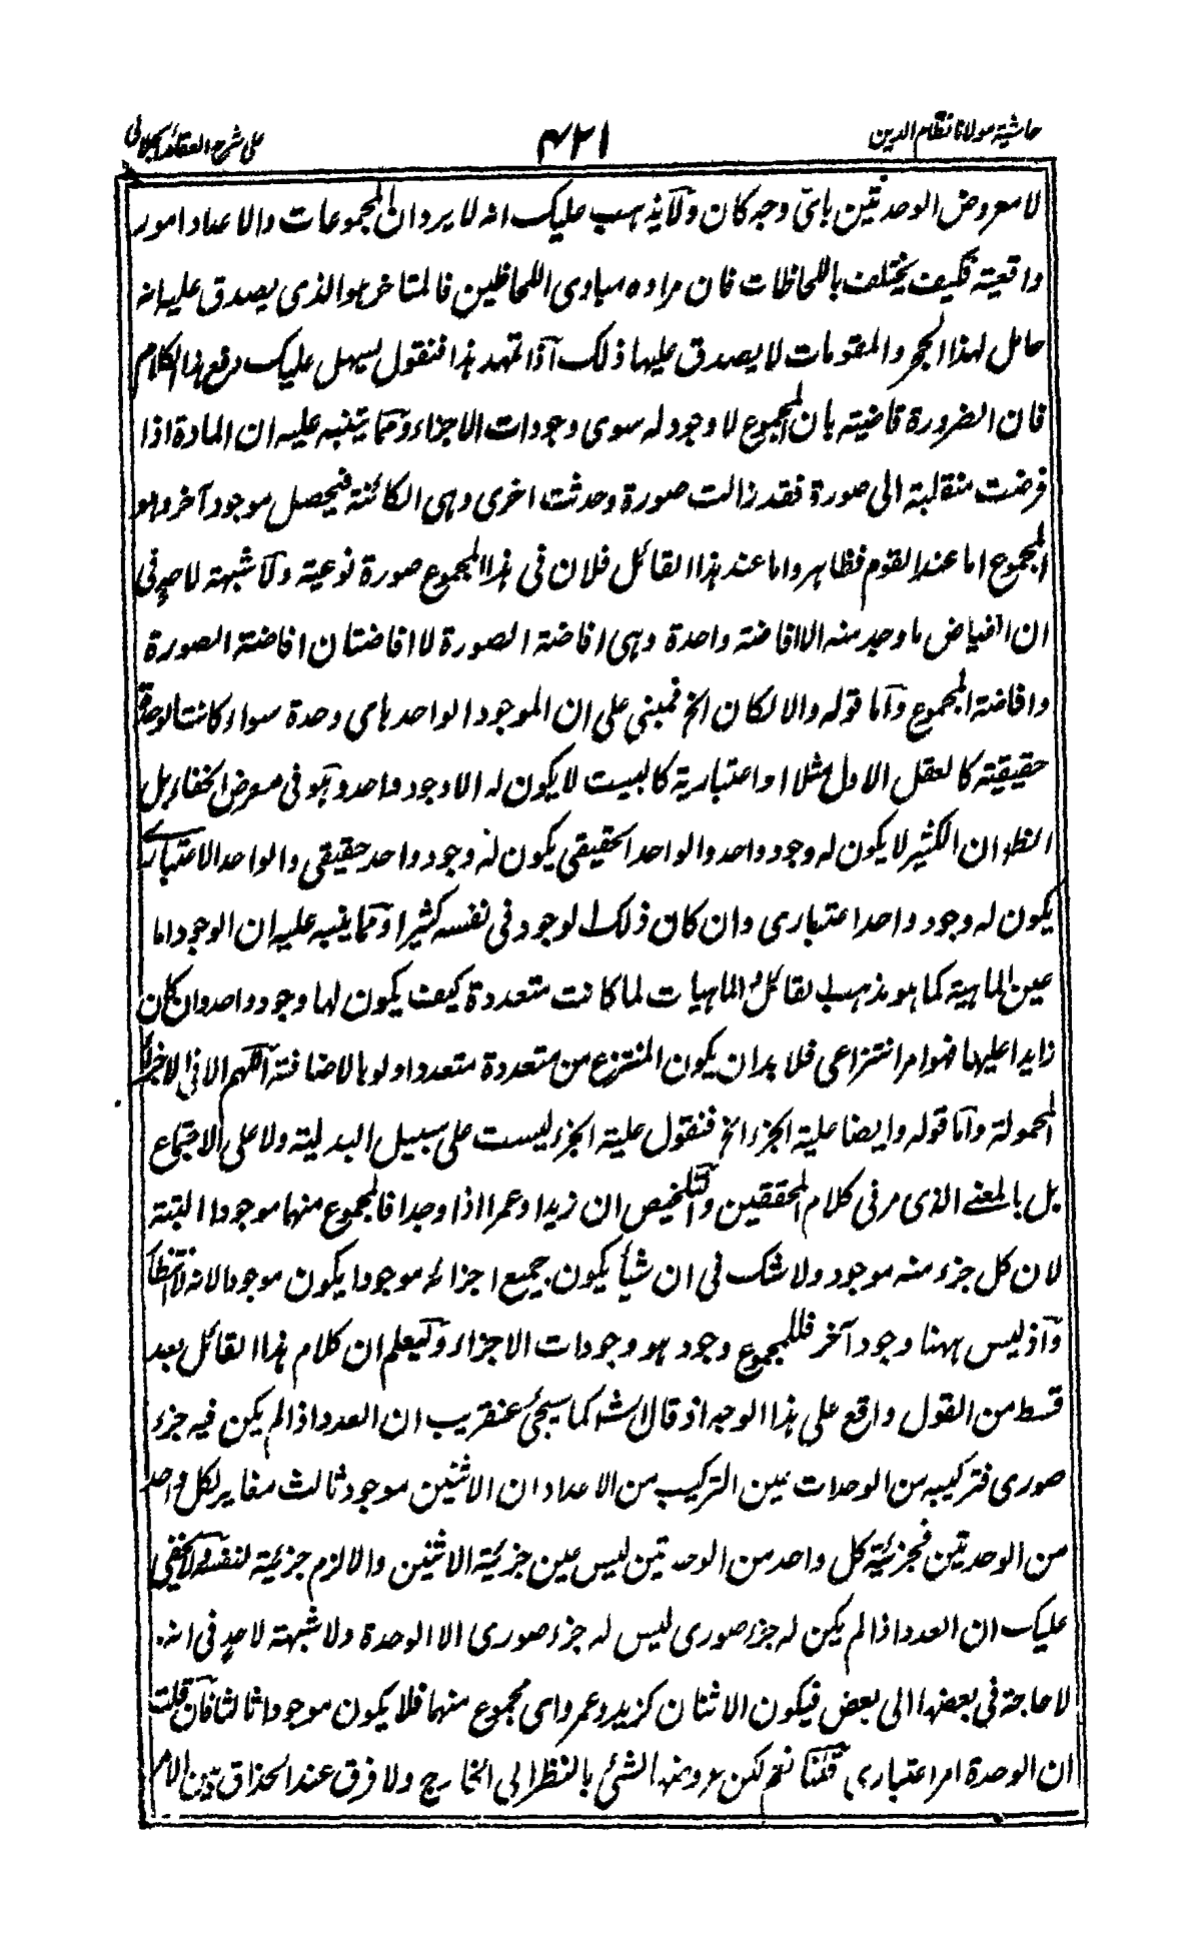 حاشية مولانا نظام الدين
٤٢١
على شرح العقائد الجلالي
لا معروض الوحدتين باي وجه كان ولا يذهب عليك انه لا يرد ان المجموعات والاعداد امور
واقعية فكيف يختلف باللحاظات فان مراده مبادى اللحاظين فالمتاخر هو الذى يصدق عليه انه
حامل لهذا الجزء والمقومات لا يصدق عليها ذلك اذا تمهد هذا فنقول يسهل عليك دفع هذا الكلام
فان الضرورة قاضية بان المجموع لا وجود له سوى وجودات الاجزاء ومما يتنبه عليه ان المادة اذا
فرضت منقلبة الى صورة فقد زالت صورة وحدثت اخرى وهى الكائنة فيحصل موجود آخر وهو
المجموع اما عند القوم فظاهر واما عند هذا القائل فلان فى هذا المجموع صورة نوعية ولا شبهة لاحد فى
ان الفياض ما وجد منه الا افاضة واحدة وهى افاضة الصورة لا افاضتان افاضة الصورة
وافاضة المجموع واما قوله والا لكان الخ فمبنى على ان الموجود الواحد باى وحدة سواء كانت الوحدة
حقيقية كالعقل الاول مثلا او اعتبارية كالبيت لا يكون له الا وجود واحد وهو فى معرض الخفاء بل
الظاهر ان الكثير لا يكون له وجود واحد والواحد الحقيقى يكون له وجود واحد حقيقى والواحد الاعتبارى
يكون له وجود واحد اعتبارى وان كان ذلك الوجود فى نفسه كثيرا ومما ينبه عليه ان الوجود اما
عين الماهية كما هو مذهب القائل والماهيات لما كانت متعددة كيف يكون لها وجود واحد وان كان
زايدا عليها فهو امر انتزاعى فلا بد ان يكون المنتزع من متعددة متعددا ولو بالاضافة اللهم الا فى الاجزاء
المحمولة واما قوله وايضا علية الجزء الخ فنقول علية الجزء ليست على سبيل البدلية ولا على الاجتماع
بل بالمعنے الذى مر فى كلام المحققين والتلخيص ان زيدا وعمرا اذا وجدا فالمجموع منهما موجود البتة
لان كل جزء منه موجود ولا شك فى ان شيأ يكون جميع اجزائه موجودا يكون موجودا لانه لا ننتظار
واذ ليس ههنا وجود آخر فللمجموع وجود هو وجودات الاجزاء وليعلم ان كلام هذا القائل بعد
قسط من القول واقع على هذا الوجه اذ قال الش كما سيجئ عنقريب ان العدد اذا لم يكن فيه جزء
صورى فتركيبه من الوحدات عين التركيب من الاعداد ان الاثنين موجود ثالث مغاير لكل واحد
من الوحدتين فجزئية كل واحد من الوحدتين ليس عين جزئية الاثنين والا لزم جزئية لنفسه ولا يخفى
عليك ان العدد اذا لم يكن له جزء صورى ليس له جزء صورى الا الوحدة ولا شبهة لاحد فى انه
لا حاجة فى بعضها الى بعض فيكون الاثنان كزيد وعمرو اى مجموع منهما فلا يكون موجودا ثالثا فان قلت
ان الوحدة امر اعتبارى قلنا نعم لكن عروضها الشئ بالنظر الى الخارج ولا فرق عند الحذاق بين الامر